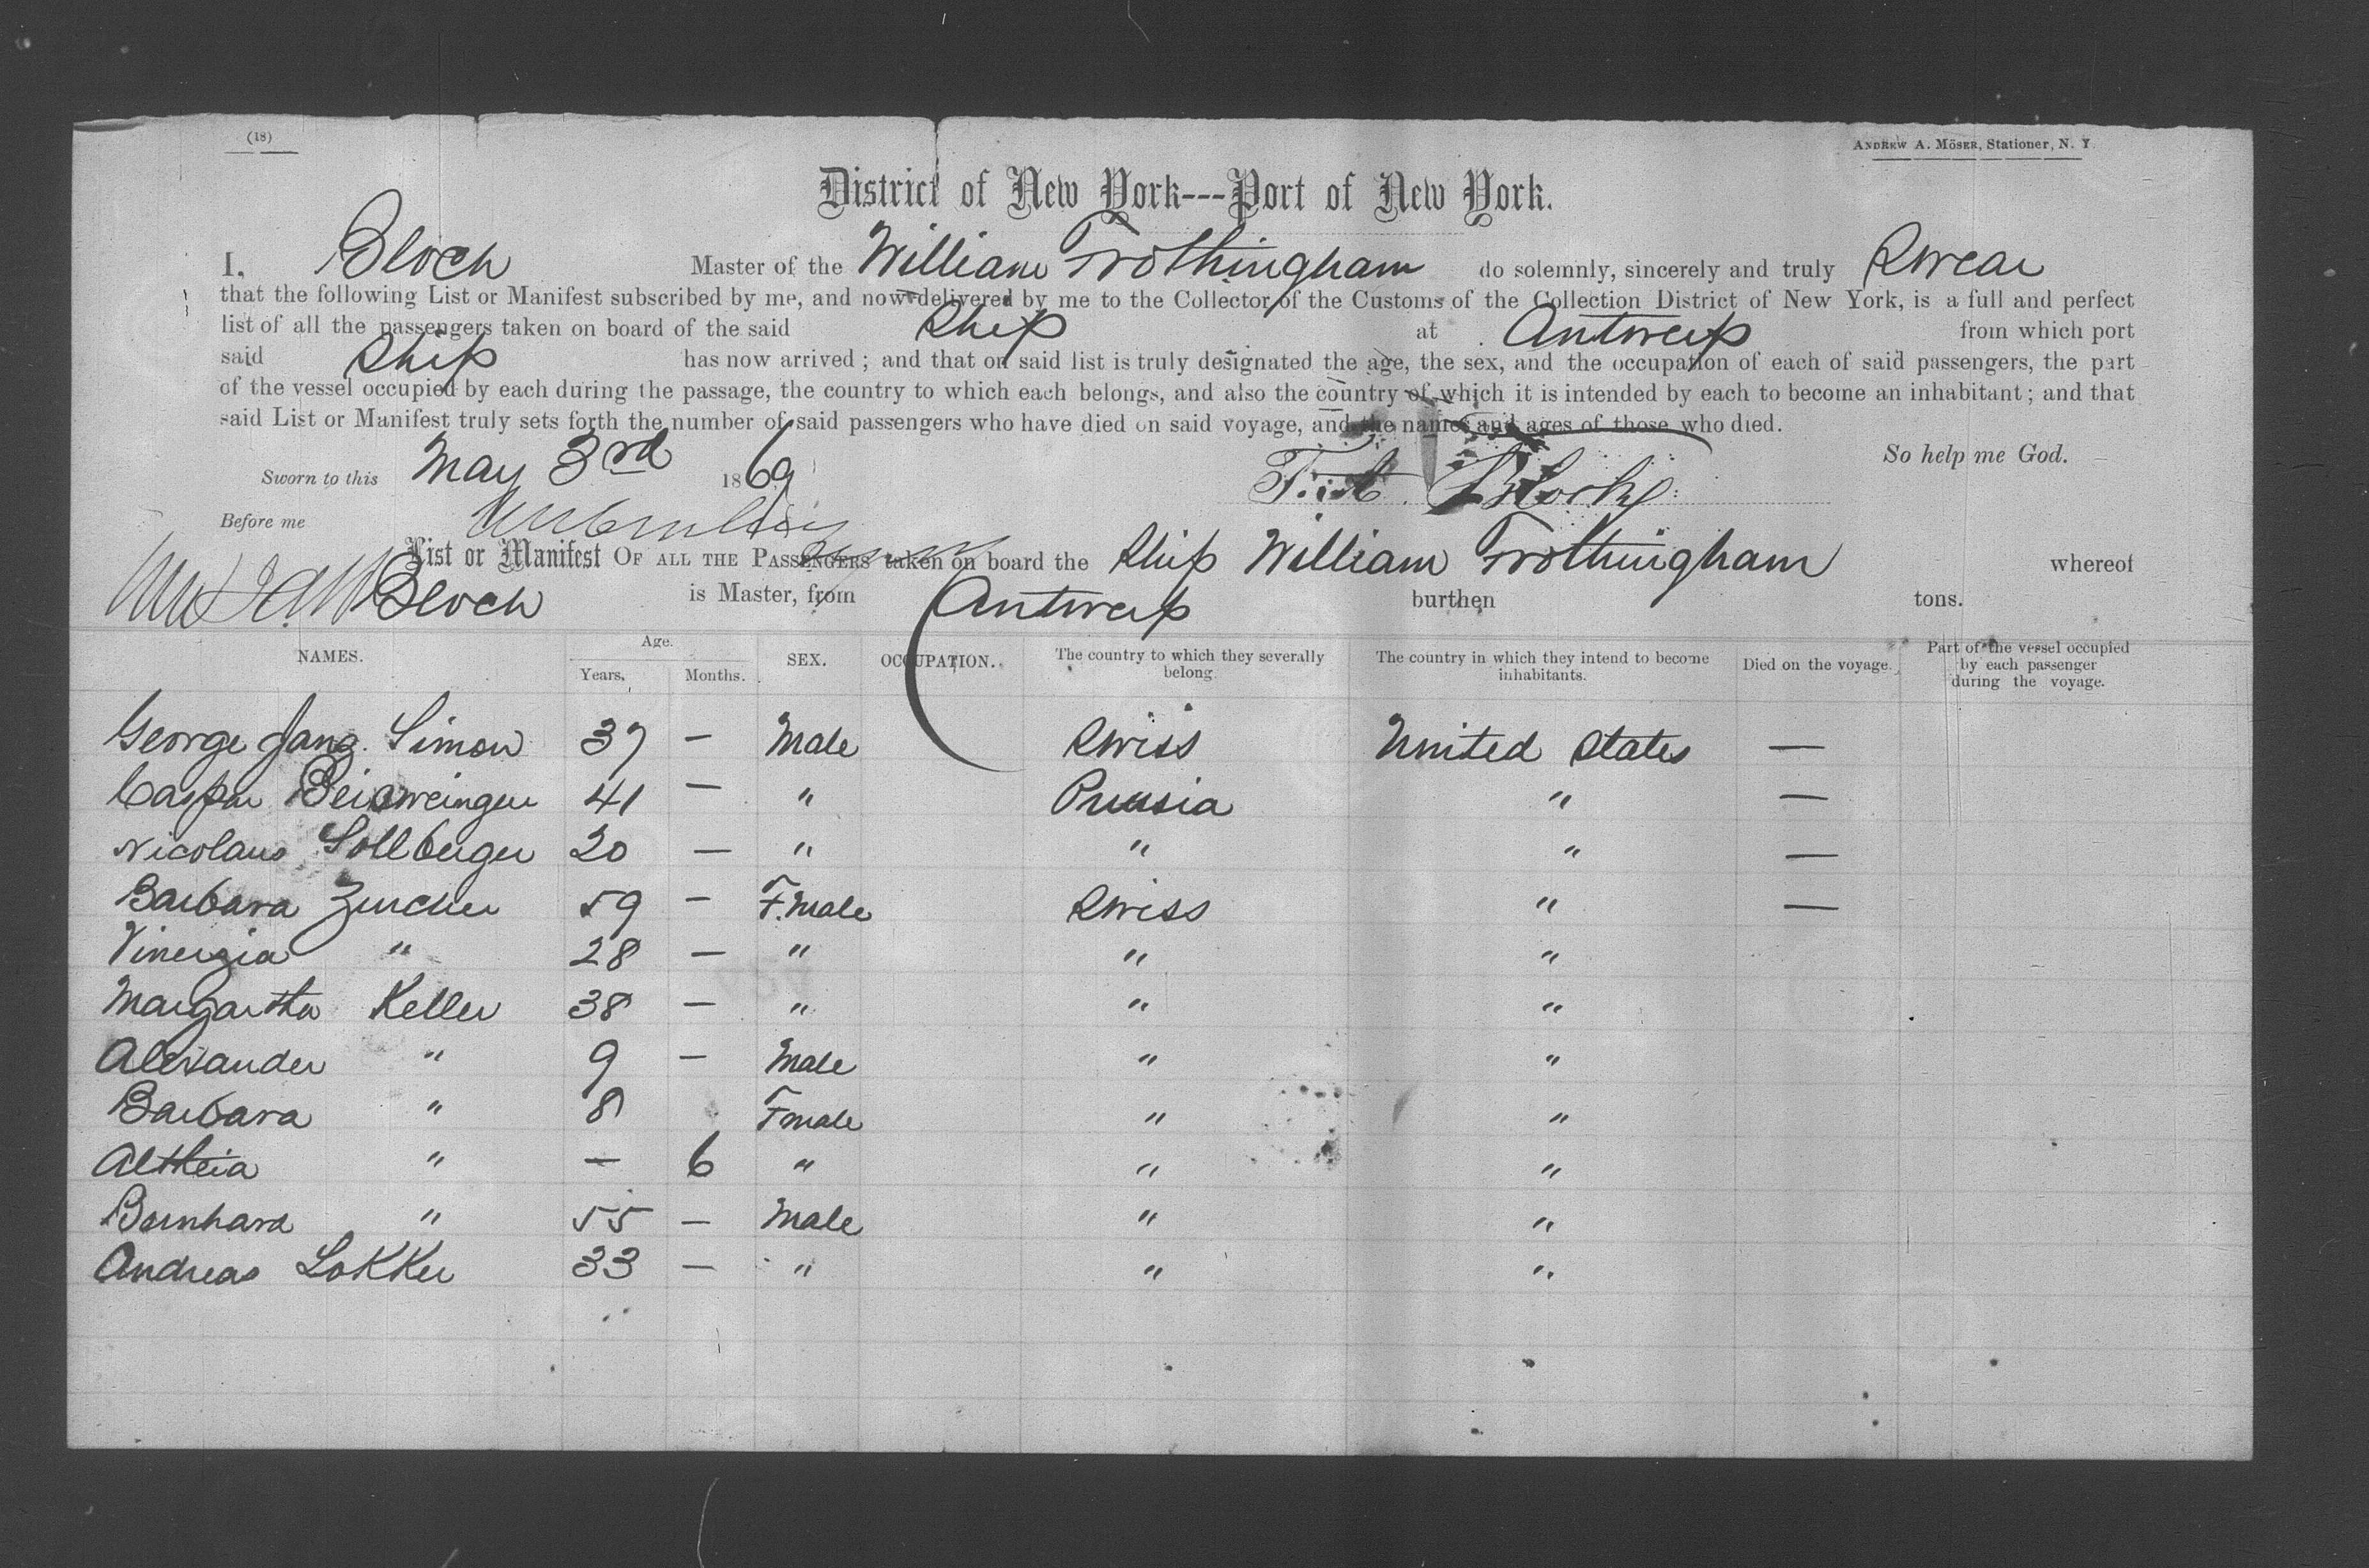 (18)
ANDREW A. MÖSER, Stationer, N. Y.
District of New York---Port of New York.
I, Bloch Master of the William Frothingham do solemnly, sincerely and truly Swear
that the following List or Manifest subscribed by me, and now delivered by me to the Collector of the Customs of the Collection District of New York, is a full and perfect
list of all the passengers taken on board of the said Ship at Antwerp from which port
said Ship has now arrived; and that on said list is truly designated the age, the sex, and the occupation of each of said passengers, the part
of the vessel occupied by each during the passage, the country to which each belongs, and also the country of which it is intended by each to become an inhabitant; and that
said List or Manifest truly sets forth the number of said passengers who have died on said voyage, and the names and ages of those who died.
So help me God.
Sworn to this May 3rd 1869
Before me
List or Manifest OF ALL THE PASSENGERS taken on board the Ship William Frothingham whereof
Bloch is Master, from Antwerp burthen tons.
NAMES. Age. Years. Months. SEX. OCCUPATION. The country to which they severally belong. The country in which they intend to become inhabitants. Died on the voyage. Part of the vessel occupied by each passenger during the voyage.
George Simon 37 — Male Swiss United States —
Caspar 41 — " Prussia " —
Nicolaus Sollberger 20 — " " " —
Barbara Zurcher 59 — F.male Swiss " —
" 28 — " " "
Margartha Keller 38 — " " "
Alexander " 9 — Male " "
Barbara " 8 Fmale " "
Altheia " — 6 " " "
Bernhard " 55 — Male " "
Andreas LoKKer 33 — " " "